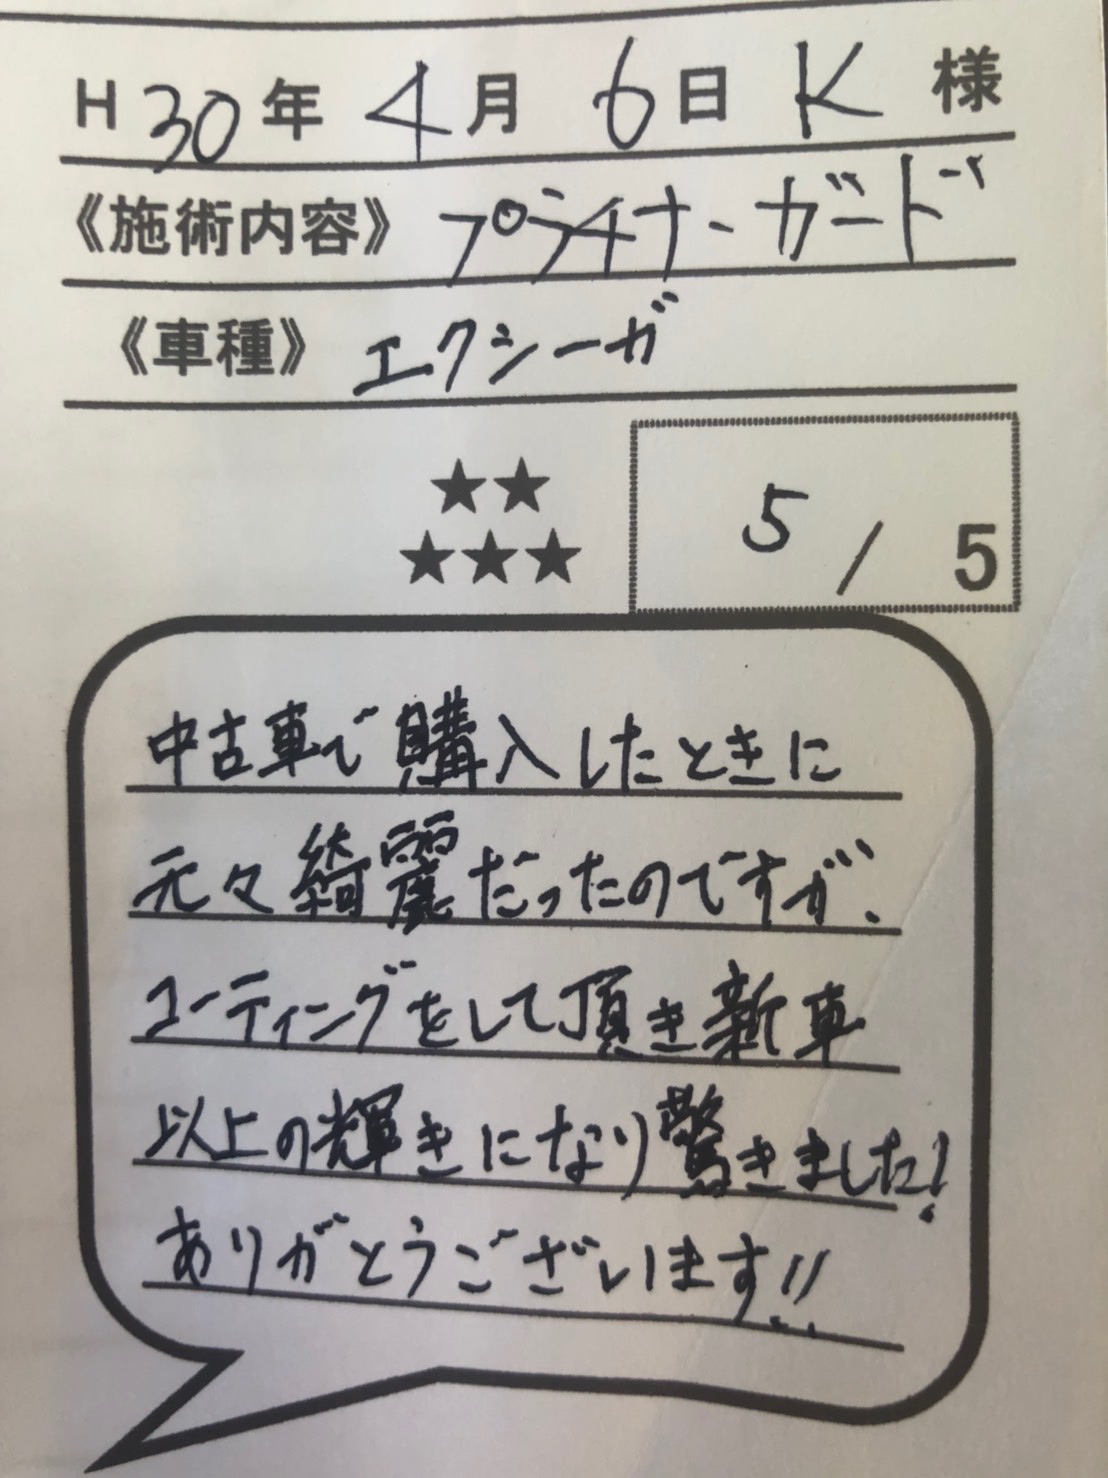 H30年4月6日 K 様
《施術内容》プライナーガード
《車種》エクシーガ
★★
★★★
5/5
中古車で購入したときに
元々綺麗だったのですが、
コーティングをして頂き新車
以上の輝きになり驚きました!
ありがとうございます!!